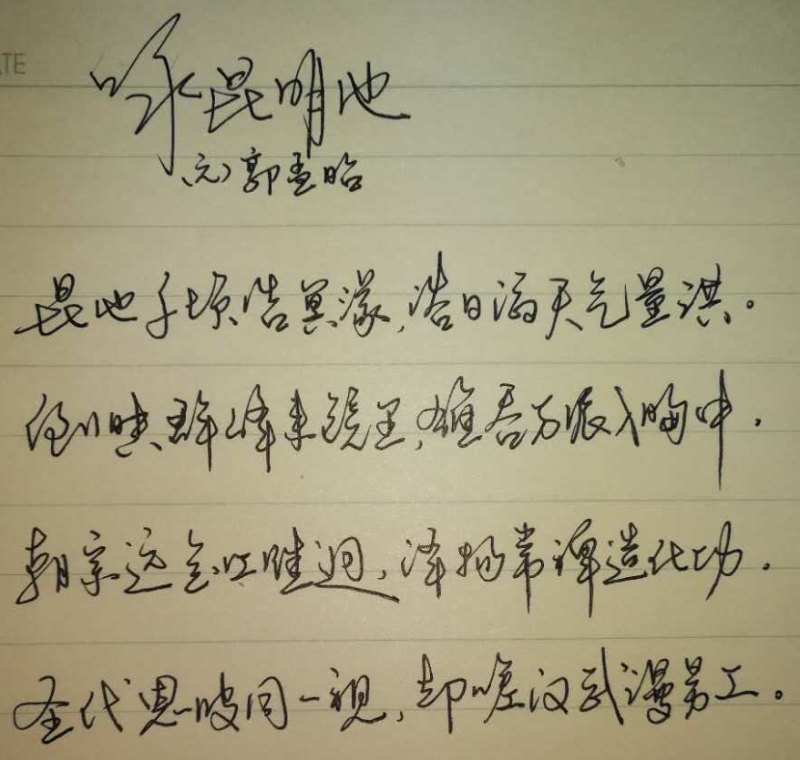 TE
咏昆明池
(元)郭孟昭
昆池千顷浩冥濛,浴日滔天气量洪。
倒映群峰来镜里,雄吞万派入胸中。
朝宗远会江淮迥,泽物常裨造化功。
圣代恩波同一视,却嗤汉武漫劳工。